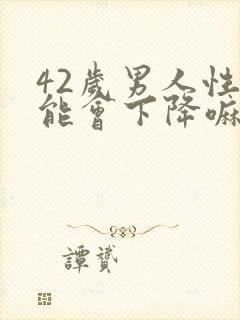 42歲男人性
能會下降嘛
譚贇